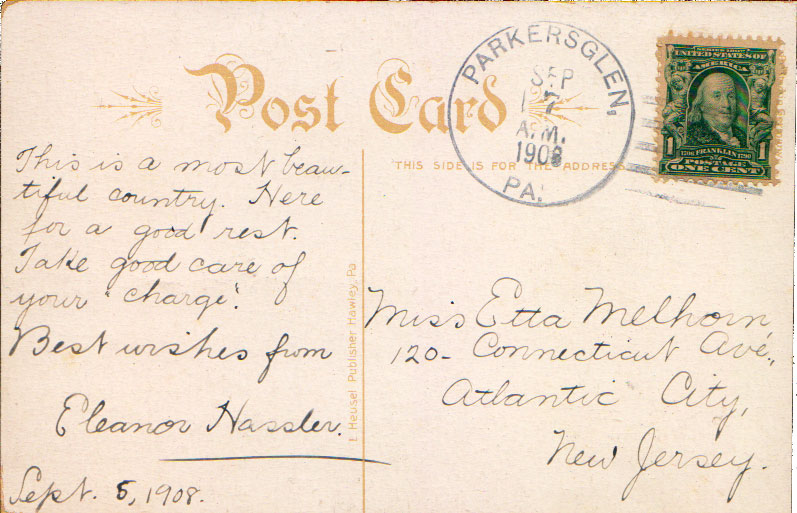 Post Card
THIS SIDE IS FOR THE ADDRESS
PARKERSGLEN,
SEP
7
A.M.
1908
PA.
SERIES 1902
UNITED STATES OF
AMERICA
1706 FRANKLIN 1790
1 1
POSTAGE
ONE CENT
This is a most beau-
tiful country. Here
for a good rest.
Take good care of
your "charge".
Best wishes from
Eleanor Hassler.
Sept. 5, 1908.
L. Heusel Publisher Hawley, Pa
Miss Etta Melhorn,
120- Connecticut Ave.,
Atlantic City,
New Jersey.